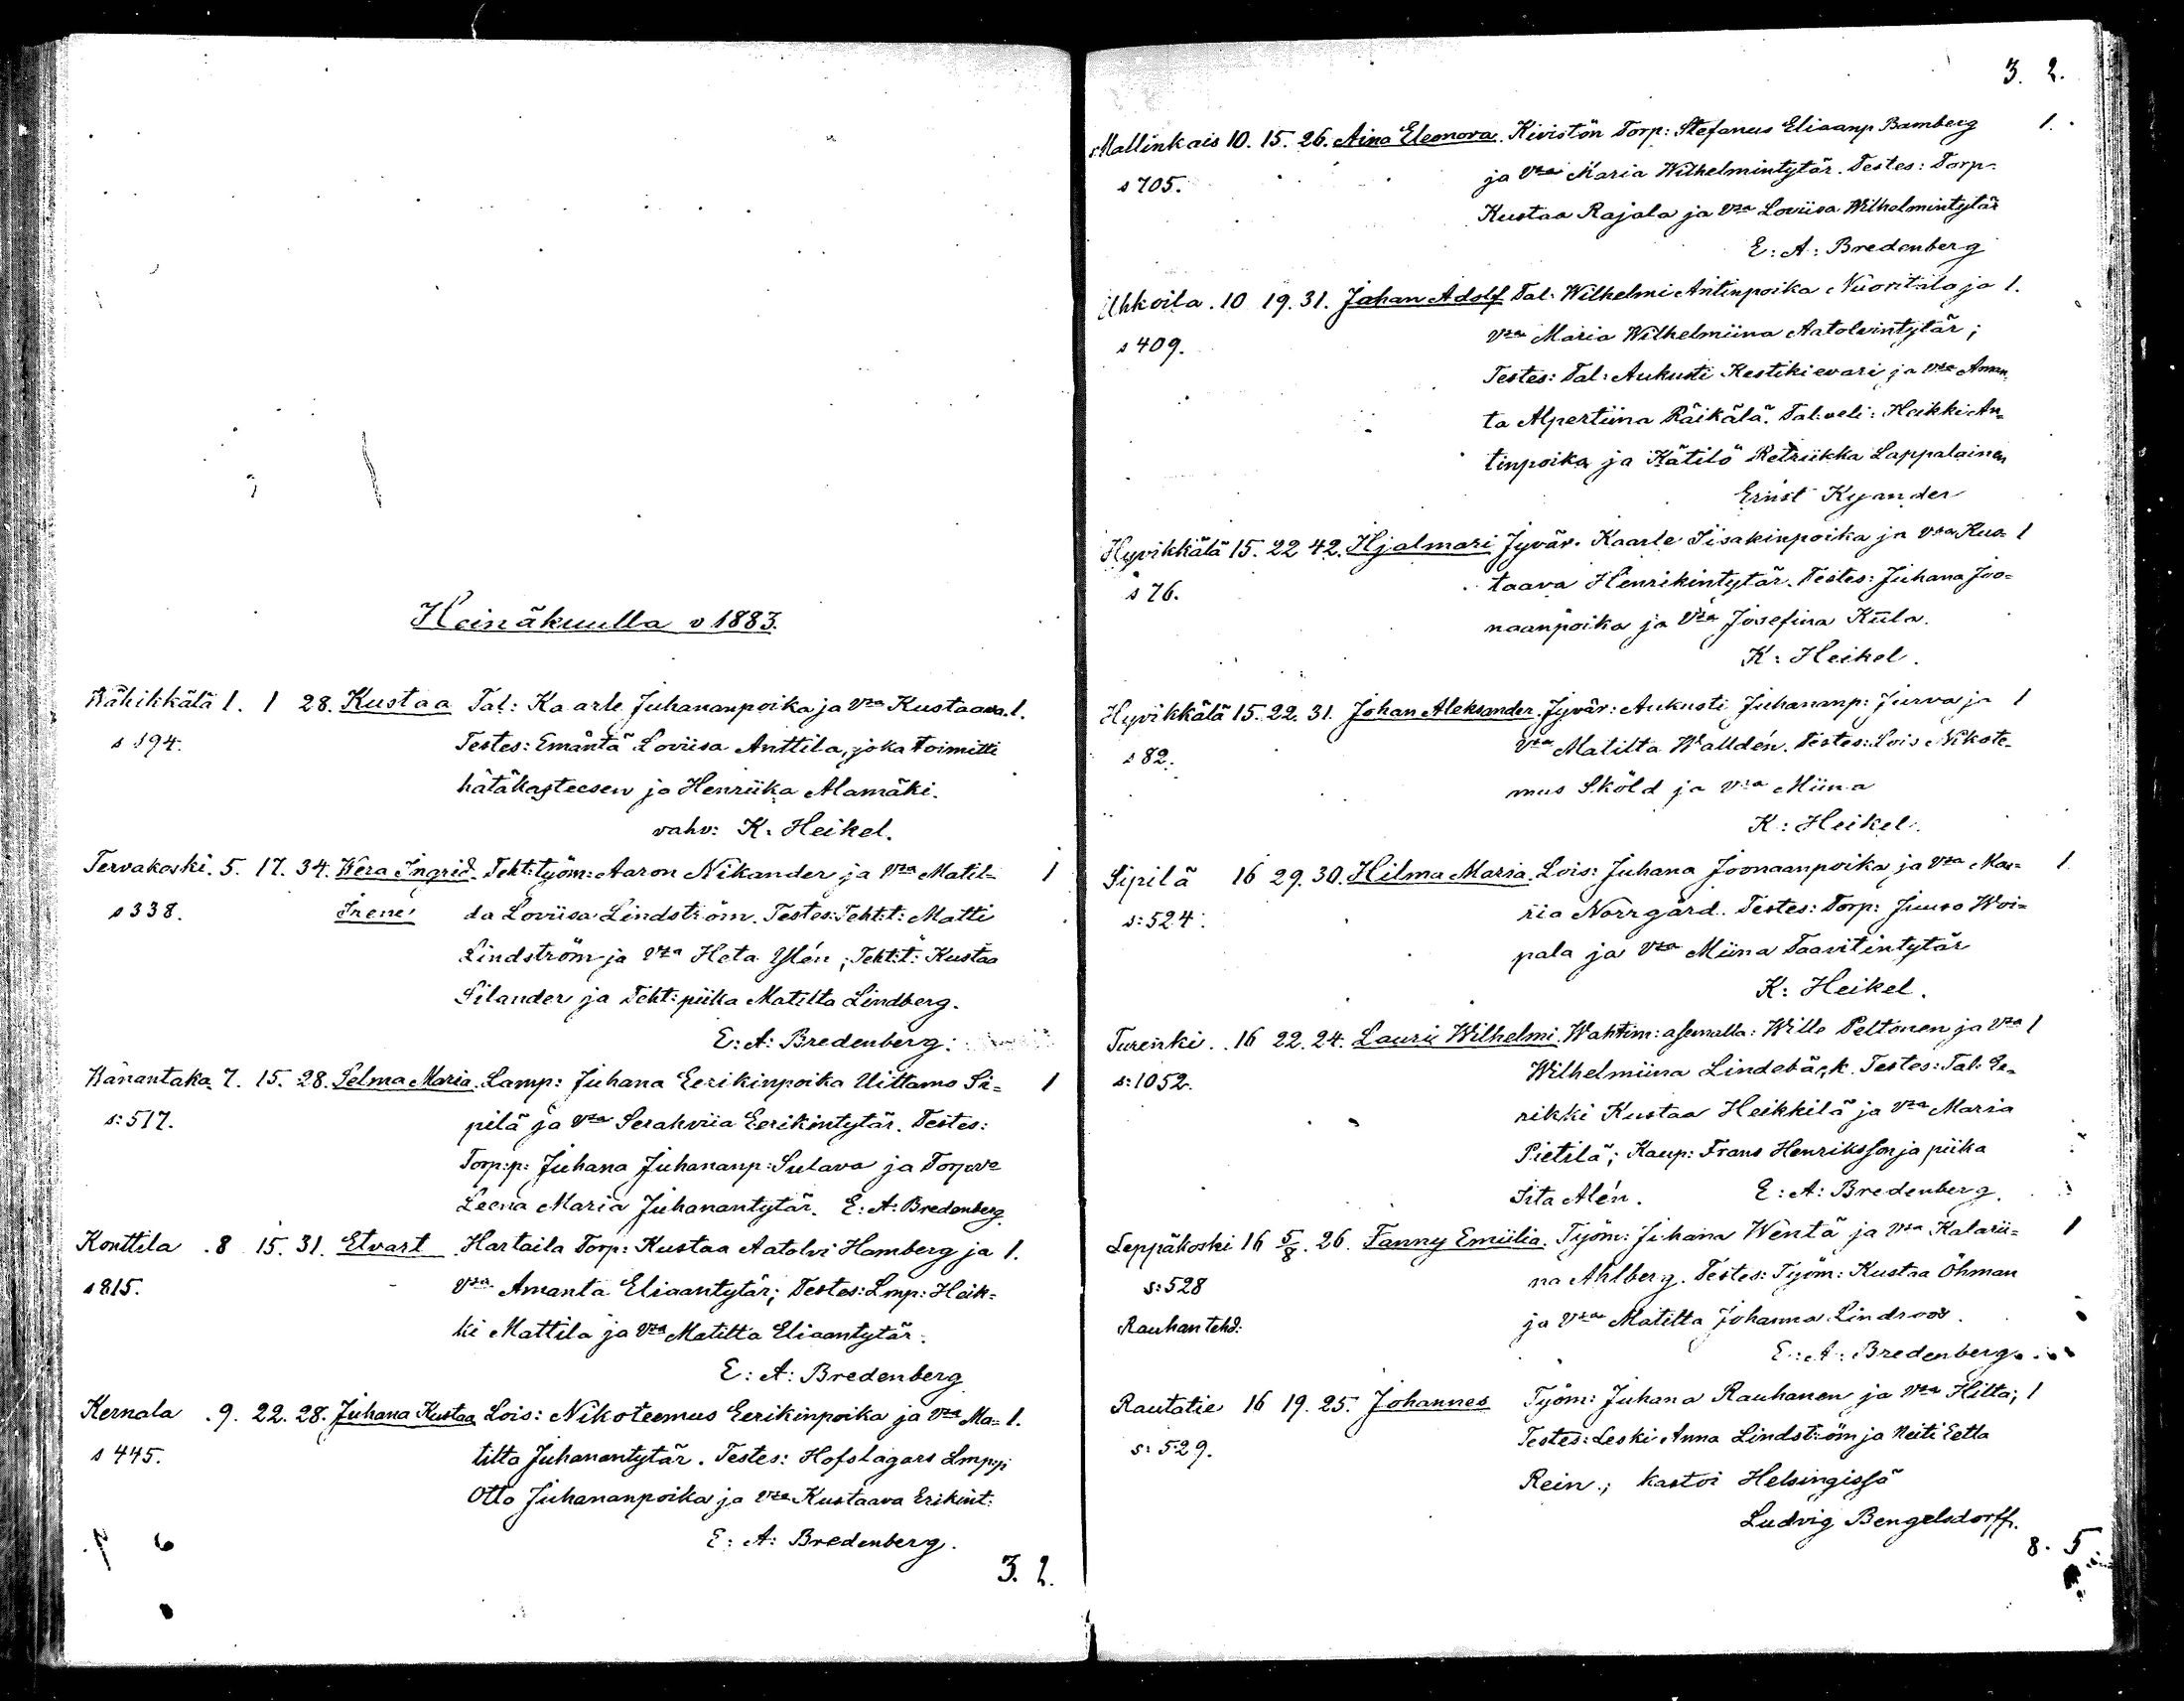 Heinäkuulla v 1883.
Rähikkälä 1. 1 28. Kustaa Tal: Kaarle Juhananpoika ja Vza Kustaava. 1.
s 194. Testes: Emäntä Loviisa Anttila, joka toimitti
hätäkasteesen ja Henriika Alamäki.
vahv: K. Heikel.
Tervakoski. 5. 17. 34. Wera Ingrid. Teht:työm: Aaron Nikander ja Vza Matil= 1
s 338. Irene da Loviisa Lindström. Testes: Teht:t: Matti
Lindström ja Vza Heta Ylén; Teht:t: Kustaa
Silander ja Teht:piika Matilta Lindberg.
E: A: Bredenberg.
Wanantaka 7. 15. 28. Selma Maria. Lamp: Juhana Eerikinpoika Uittamo Si= 1
s: 517. pilä ja Vza Serahviia Eerikintytär. Testes:
Torp:p: Juhana Juhananp: Sulava ja Torp:v
Leena Maria Juhanantytär. E: A: Bredenberg.
Konttila .8 15. 31. Etvart Hartaila Torp: Kustaa Aatolvi Hamberg ja 1.
s 815. Vza Amanta Eliaantytär; Testes: Lmp: Heik=
ki Mattila ja Vza Matilta Eliaantytär.
E: A: Bredenberg
Kernala .9. 22. 28. Juhana Kustaa Lois: Nikoteemus Eerikinpoika ja Vza Ma= 1.
s 445. tilta Juhanantytär. Testes: Hofslagars Lmp:p:
Otto Juhananpoika ja Vza Kustaava Erikint:
E: A: Bredenberg.
3. 2.
3. 2.
Mallinkais 10. 15. 26. Aina Eleonora. Kivistön Torp: Stefanus Eliaanp Bamberg 1.
s 705. ja Vza Maria Wilhelmintytär. Testes: Torp.
Kustaa Rajala ja Vza Loviisa Wilhelmintytär
E: A: Bredenberg
Uhkoila. 10 19. 31. Johan Adolf Tal: Wilhelmi Antinpoika Nuoritalo ja 1.
s 409. Vza Maria Wilhelmiina Aatolvintytär;
Testes: Tal: Aukusti Kestikievari ja Vza Aman
ta Alpertiina Räikälä. Tal:veli: Heikki An=
tinpoika ja Kätilö Retriikka Lappalainen
Ernst Kyander
Hyvikkälä 15. 22 42. Hjalmari Jyvär. Kaarle Iisakinpoika ja Vza Kus= 1
s 76. taava Henrikintytär. Testes: Juhana Joo=
naanpoika ja Vza Josefina Küla.
K: Heikel.
Hyvikkälä 15. 22. 31. Johan Aleksander. Jyvär: Aukusti Juhananp: Jurva ja 1
s 82. Vza Matilta Walldén. Testes: Lois Nikote=
mus Sköld ja Vza Miina
K: Heikel.
Sipilä 16 29. 30. Hilma Maria. Lois: Juhana Joonaanpoika ja Vza Ma= 1.
s: 524. ria Norrgård. Testes: Torp: Juuso Woi=
pala ja Vza Miina Taavitintytär
K: Heikel.
Turenki. 16 22. 24. Lauri Wilhelmi. Wahtim: asemalla: Wille Peltonen ja Vza 1
s: 1052. Wilhelmiina Lindebäck. Testes: Tal: Ee=
rikki Kustaa Heikkilä ja Vza Maria
Pietilä; Kaup: Frans Henriksson ja piika
Iita Alén. E: A: Bredenberg.
Leppäkoski 16 5/8. 26. Fanny Emiilia. Työm: Juhana Wentä ja Vza Katarii= 1
s: 528 na Ahlberg. Testes: Työm: Kustaa Öhman
Rauhan tehd: ja Vza Matilta Johanna Lindroos.
E: A: Bredenberg.
Rautatie 16 19. 25. Johannes Työm: Juhana Rauhanen ja Vza Hilta; 1
s: 529. Testes: Leski Anna Lindström ja Neiti Eetla
Rein.; kastoi Helsingissä
Ludvig Bengelsdorff.
8. 5